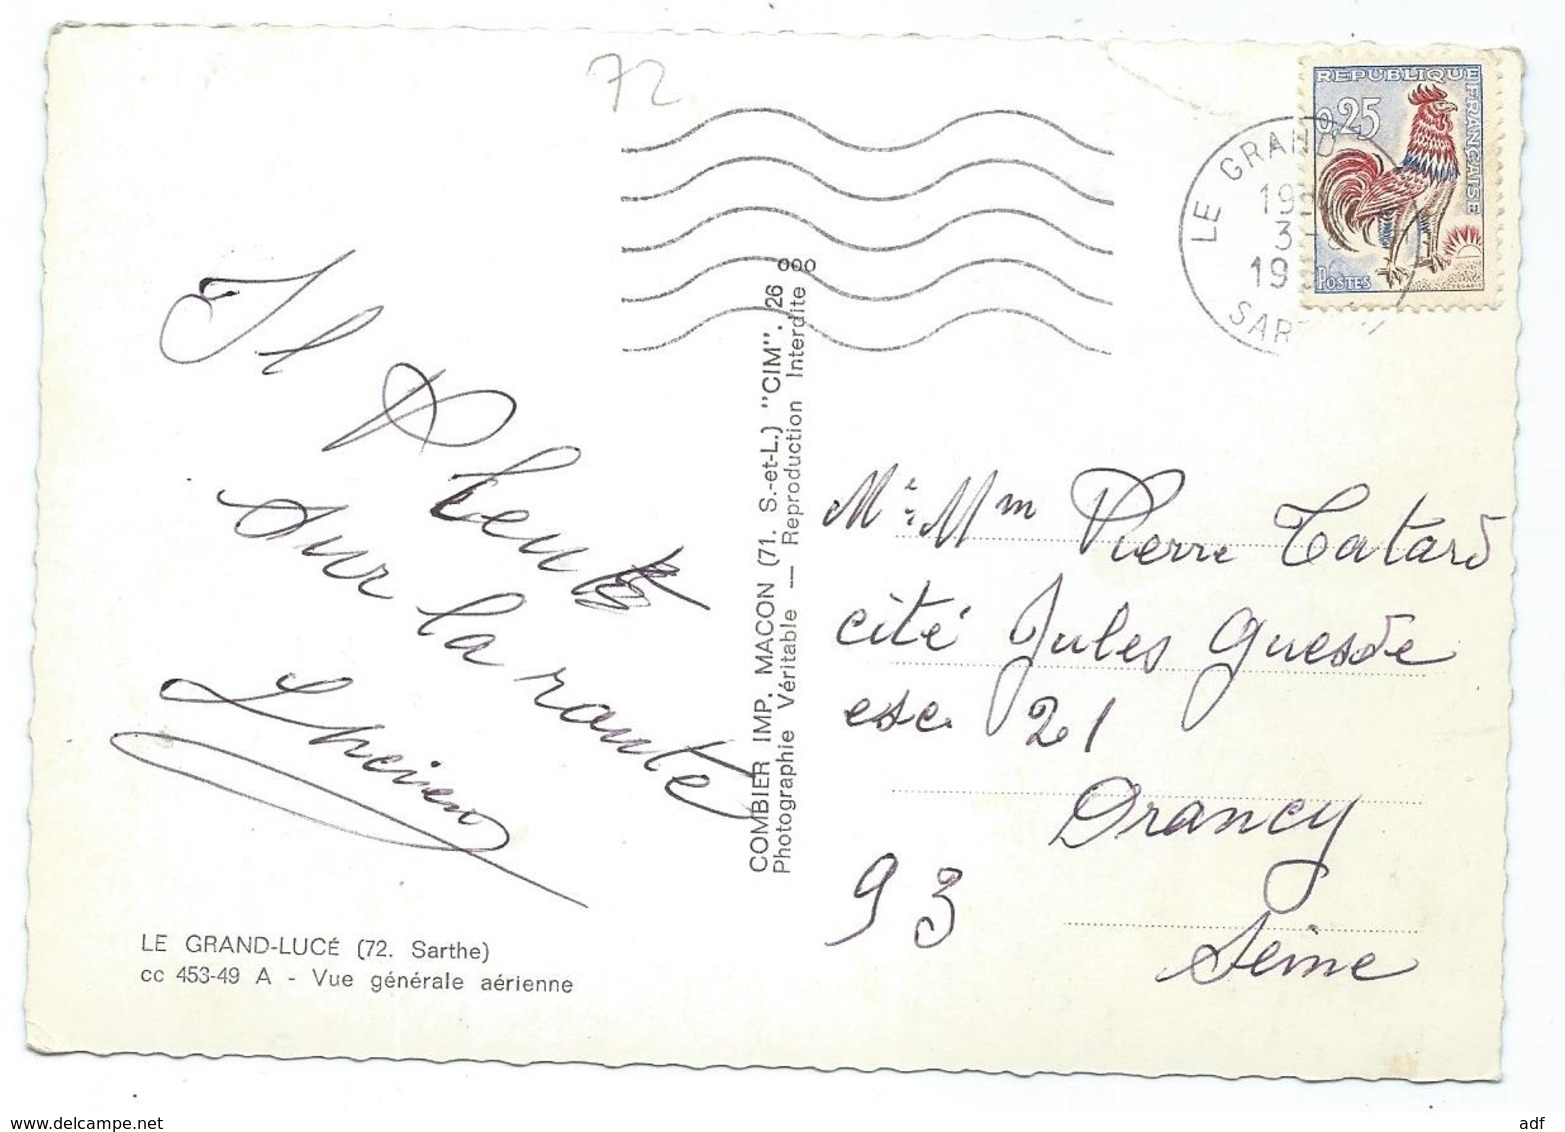 72
RÉPUBLIQUE
FRANÇAISE
0,25
POSTES
LE GRAND
19
3
19
SAR
Il Pleut
sur la route
Lucien
COMBIER IMP. MACON (71. S.-et-L.) "CIM". 26 000
Photographie Véritable — Reproduction Interdite
Mr. Mm Pierre Tatard
cité Jules Guesde
esc. 21
Drancy
93
Seine
LE GRAND-LUCÉ (72. Sarthe)
cc 453-49 A - Vue générale aérienne
www.delcampe.net
adf